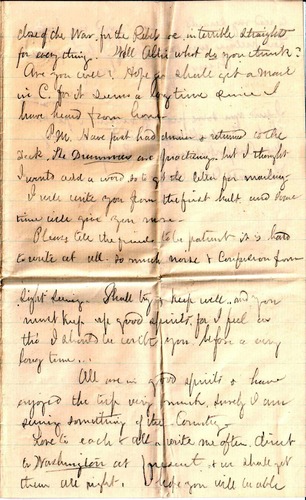 close of the War, for the Rebels are in terrible straights
for everything. Well Abbie what do you think?
Are you well? Hope we shall get a Mail
in C. for it seems a long time since I
have heard from home.
P.M. Have just had dinner & returned to the
deck, The Drummers are practicing, but I thought
I would add a word so to get the letter for mailing
I will write you from the first halt and some
time will give you more.
Please tell the friends to be patient it is hard
to write at all. So much noise & Confusion from
sight seeing. Shall try & keep well, and you
must keep up good spirits, for I feel as
tho I should be with you, before a very
long time...
All are in good spirits & have
enjoyed the trip very much, surely I am
seeing something of the Country.
Love to each & all & write me often, direct
to Washington at present, & we shall get
them all right. I hope you will be able